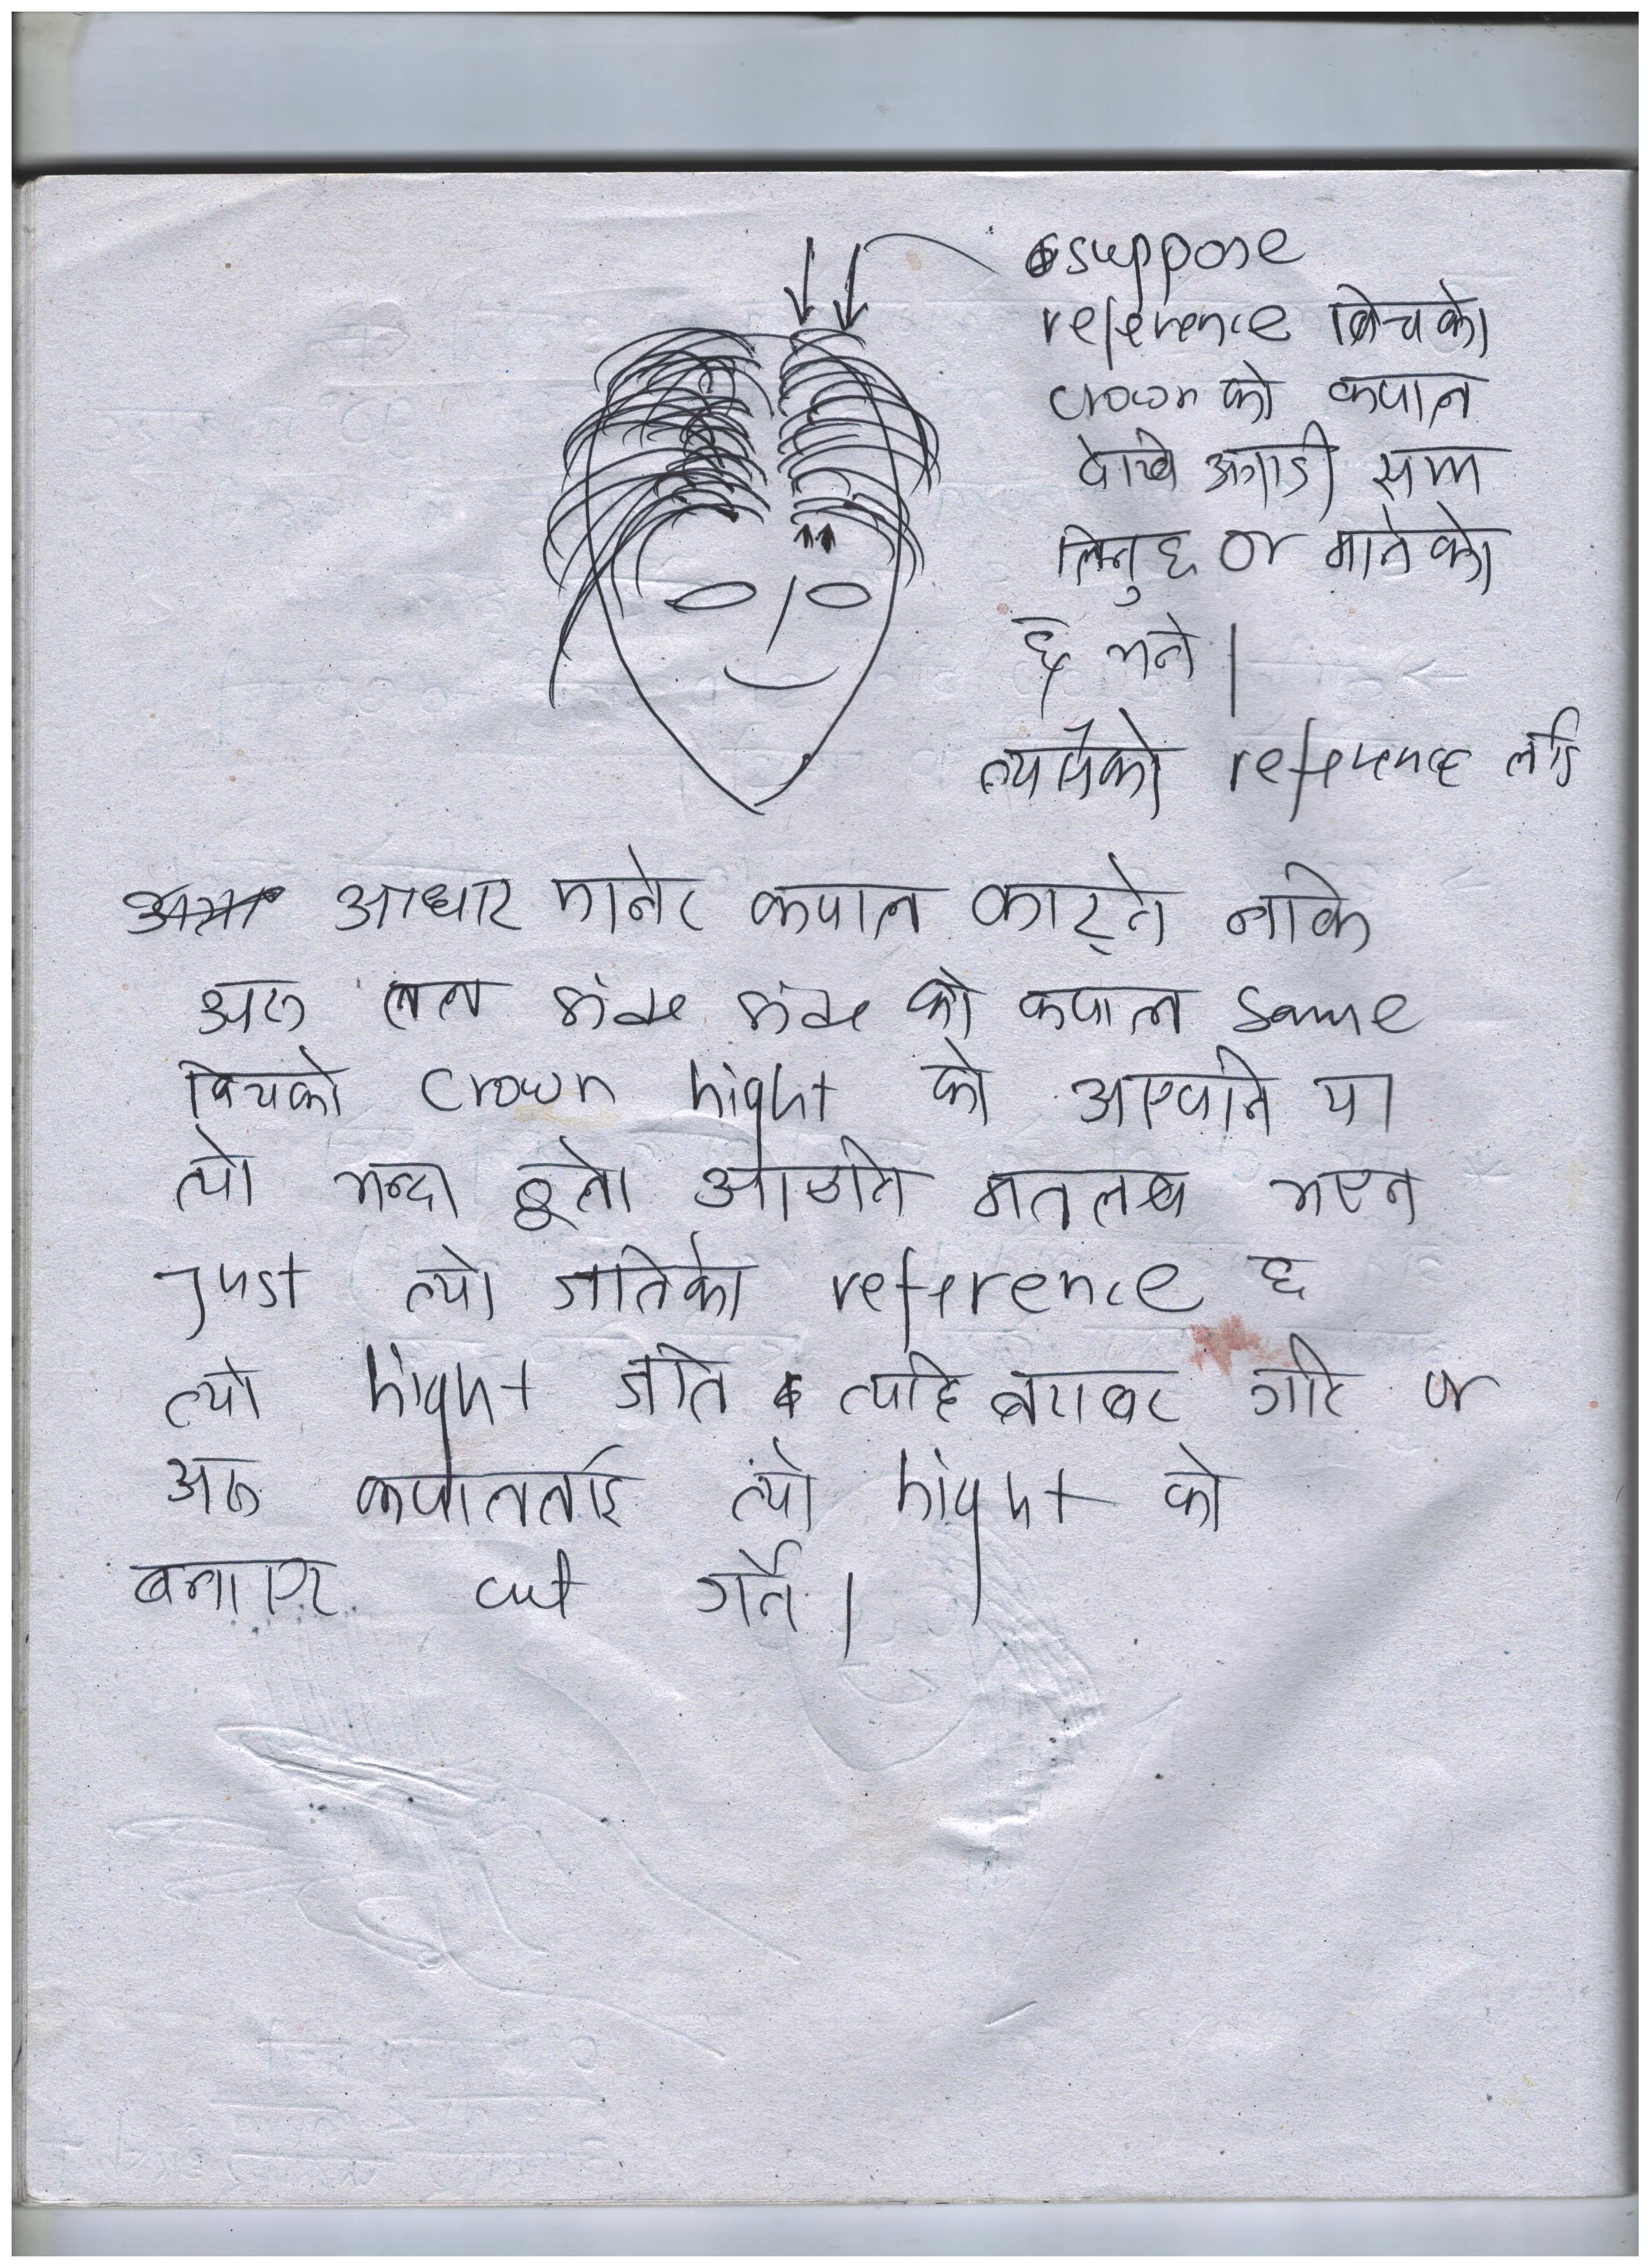 suppose
reference बिचको
crown को कपाल
देखि अगाडी सम्म
लिनु छ or मानेको
छ भने |
त्यसैको reference लाई
आधार मानेर कपाल काट्ने नाकि
अरु को कपाल same
बिचको crown hight को आएपनि या
त्यो भन्दा ठूलो आएपनि मतलब भएन
Just त्यो जतिको reference छ
त्यो hight जति त्यहि बराबर गरि or
अरु कपाललाई त्यो hight को
बनाएर cut गर्ने |